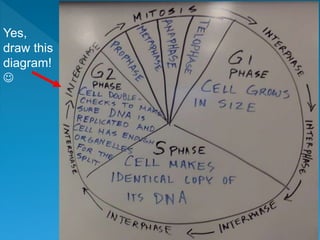 Yes,
draw this
diagram!
☺
MITOSIS
PROPHASE
METAPHASE
ANAPHASE
TELOPHASE
INTERPHASE
G1
PHASE
CELL GROWS
IN SIZE
INTERPHASE
INTERPHASE
S PHASE
CELL MAKES
IDENTICAL COPY OF
ITS DNA
INTERPHASE
INTERPHASE
INTERPHASE
G2
PHASE
CELL DOUBLE-
CHECKS TO MAKE
SURE DNA IS
REPLICATED AND
CELL HAS ENOUGH
ORGANELLES
FOR THE
SPLIT.